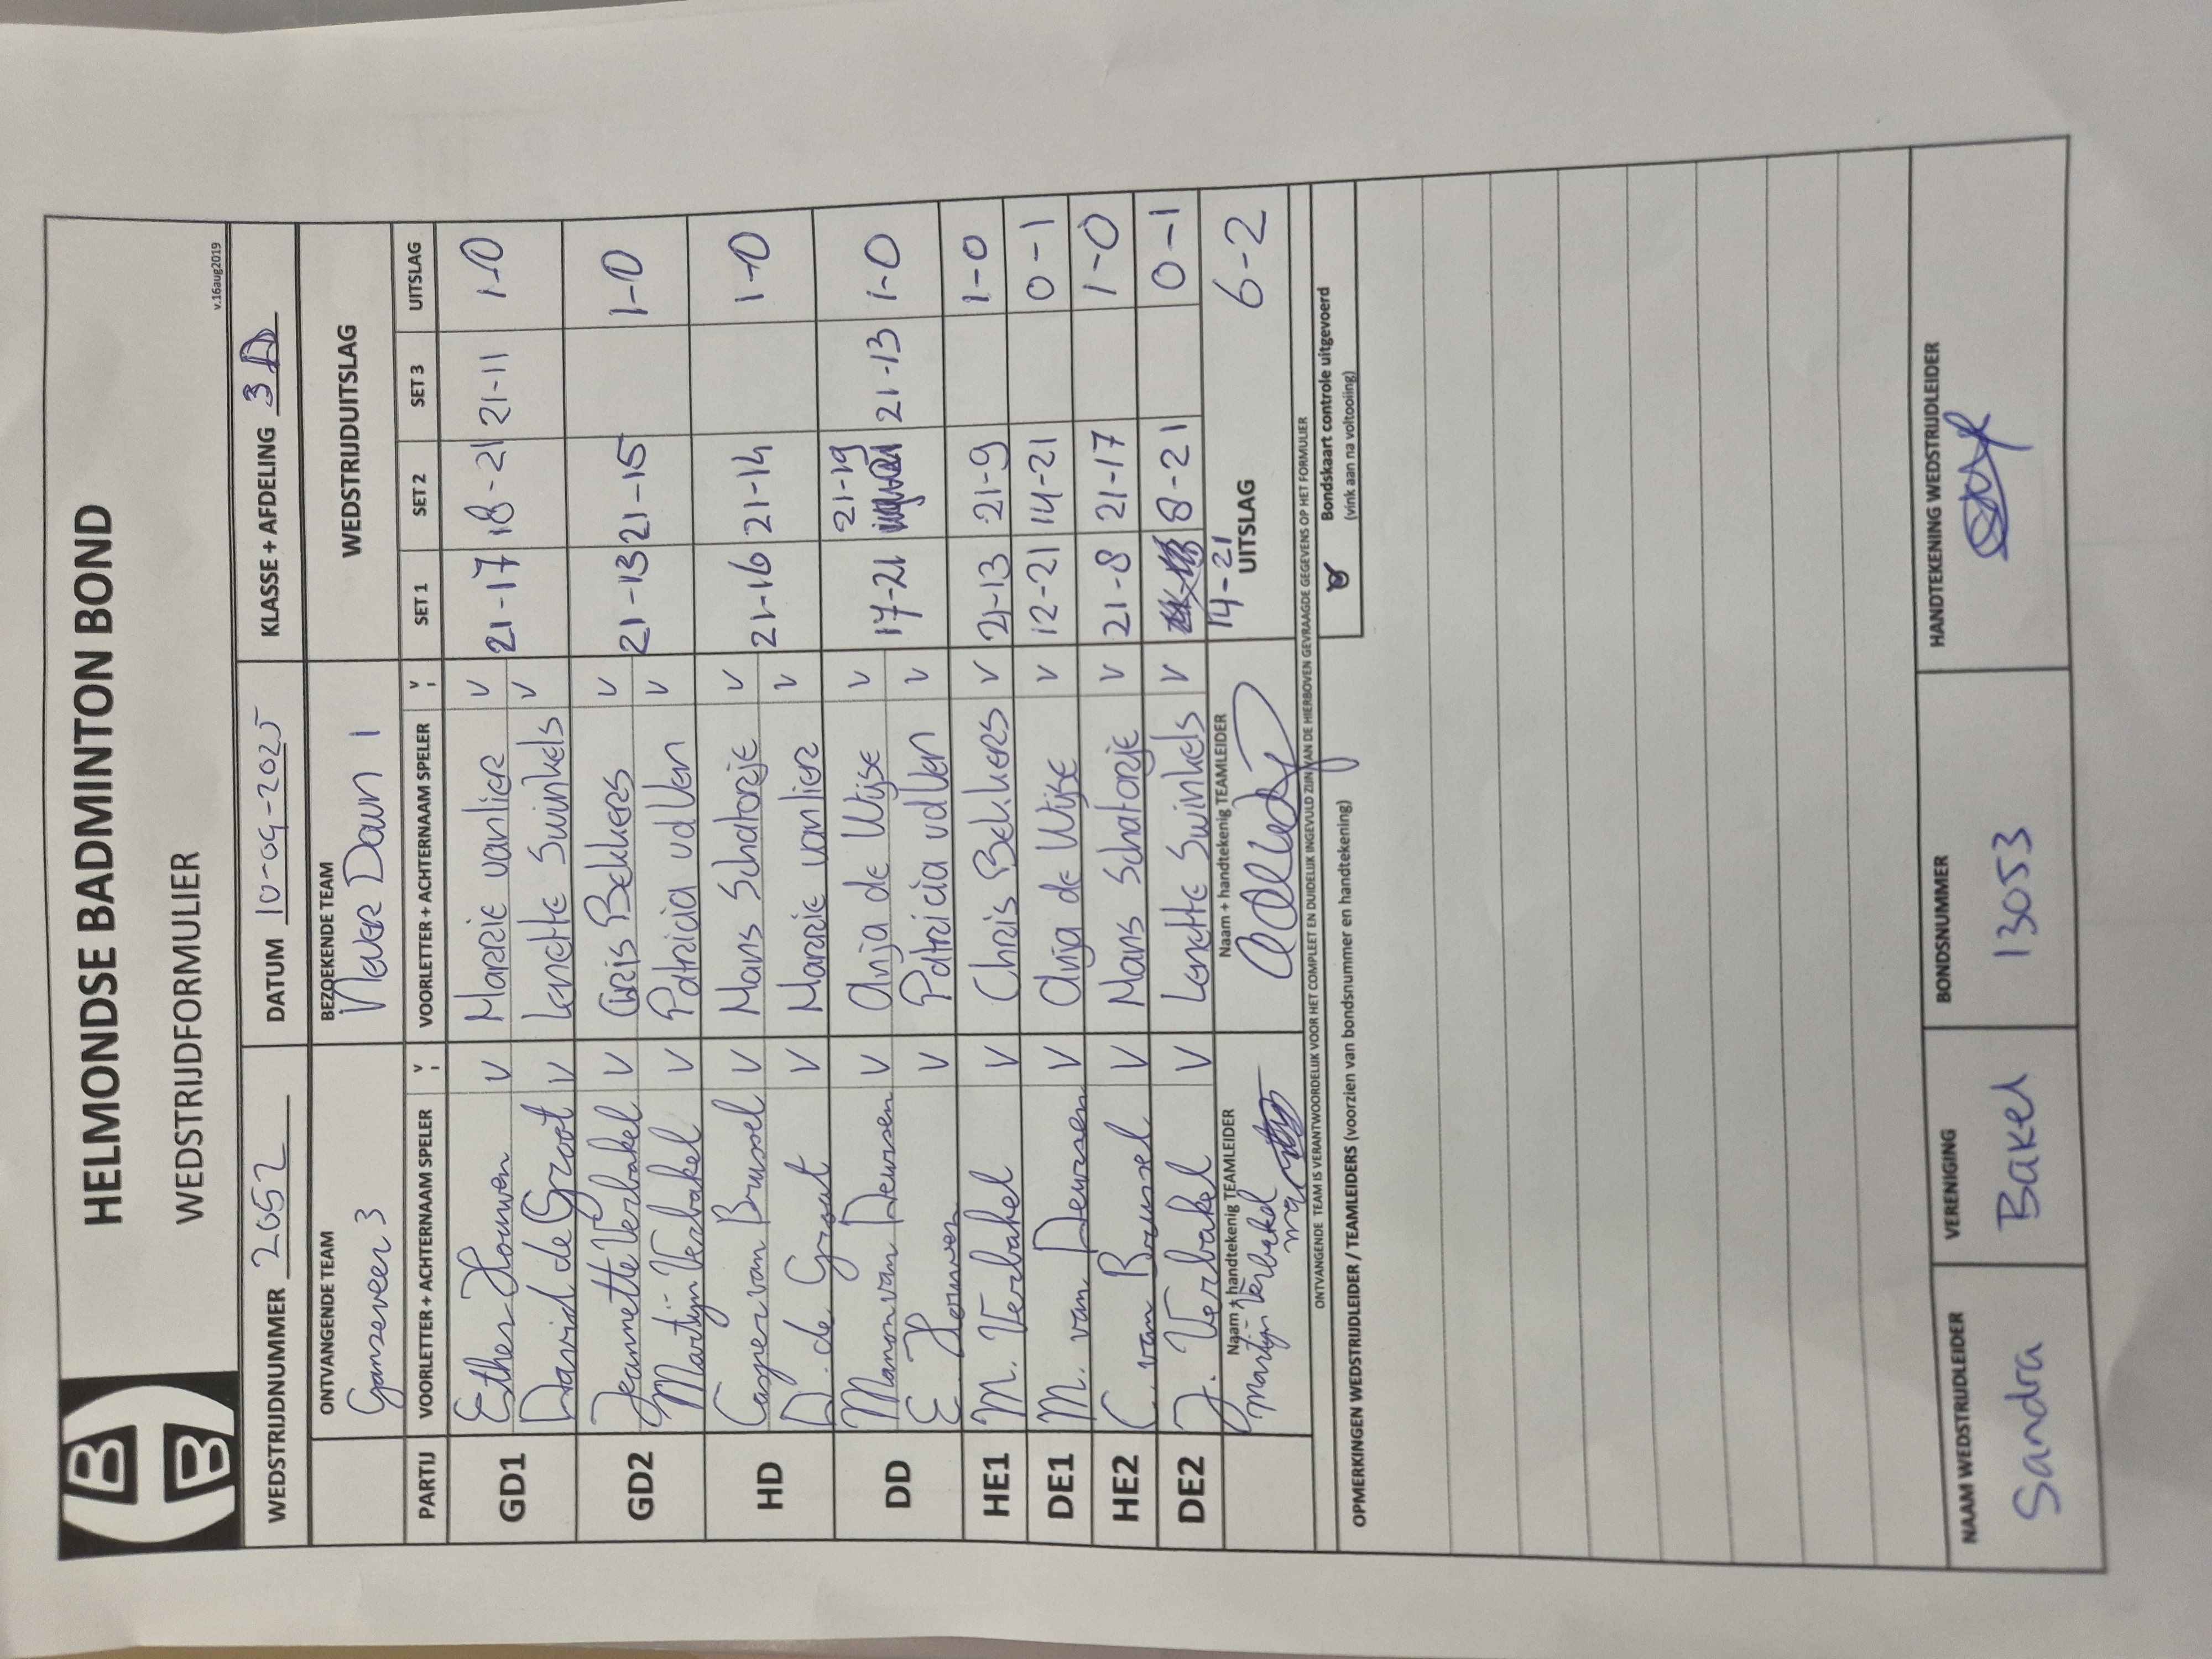 HELMONDSE BADMINTON BOND
WEDSTRIJDFORMULIER
v.16aug2019
WEDSTRIJDNUMMER 2052 DATUM 10-09-2025 KLASSE + AFDELING 3D
ONTVANGENDE TEAM BEZOEKENDE TEAM WEDSTRIJDUITSLAG
Ganzeveer 3 Never Down 1
PARTIJ VOORLETTER + ACHTERNAAM SPELER V VOORLETTER + ACHTERNAAM SPELER V SET 1 SET 2 SET 3 UITSLAG
GD1 Esther Houwen V Marrie van Lier V 21-17 18-21 21-11 1-0
David de Groot V Lenette Swinkels V
GD2 Jeannette Verbakel V Chris Bekkers V 21-13 21-15 1-0
Martijn Verbakel V Patricia vd Ven V
HD Casper van Brussel V Mans Schatorje V 21-16 21-14 1-0
D. de Groot V Marrie van Lier V
DD Manon van Deursen V Anja de Wijse V 17-21 21-19 21-13 1-0
E. Houwen V Patricia vd Ven V
HE1 M. Verbakel V Chris Bekkers V 21-13 21-9 1-0
DE1 M. van Deursen V Anja de Wijse V 12-21 14-21 0-1
HE2 C. van Brussel V Mans Schatorje V 21-8 21-17 1-0
DE2 J. Verbakel V Lenette Swinkels V 8-21 0-1
14-21
Naam + handtekenig TEAMLEIDER Naam + handtekenig TEAMLEIDER UITSLAG 6-2
Martijn Verbakel
ONTVANGENDE TEAM IS VERANTWOORDELIJK VOOR HET COMPLEET EN DUIDELIJK INGEVULD ZIJN VAN DE HIERBOVEN GEVRAAGDE GEGEVENS OP HET FORMULIER
Bondskaart controle uitgevoerd
(vink aan na voltooiing)
OPMERKINGEN WEDSTRIJDLEIDER / TEAMLEIDERS (voorzien van bondsnummer en handtekening)
NAAM WEDSTRIJDLEIDER VERENIGING BONDSNUMMER HANDTEKENING WEDSTRIJDLEIDER
Sandra Bakel 13053